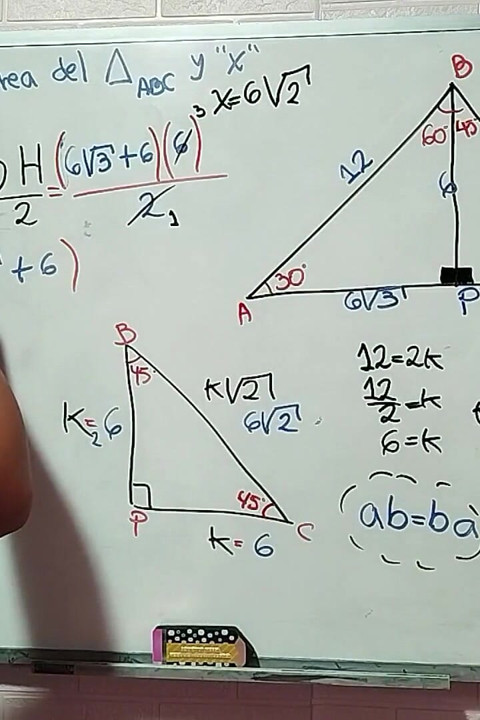 rea del △ABC y "x"
x=6√2
H/2 = (6√3+6)(6)/2 3 1
+6)
B
60° 45°
12
6
30°
A 6√3 P
B
45°
K=6
K√2
6√2
P 45° C
K=6
12=2K
12/2=K
6=K
ab=ba